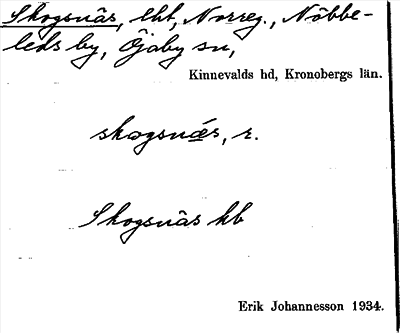 Skogsnäs, lht, Norreg., Nöbbe-
leds by, Öjaby sn,
Kinnevalds hd, Kronobergs län.
skogsnǽs, r.
Skogsnäs kb
Erik Johannesson 1934.